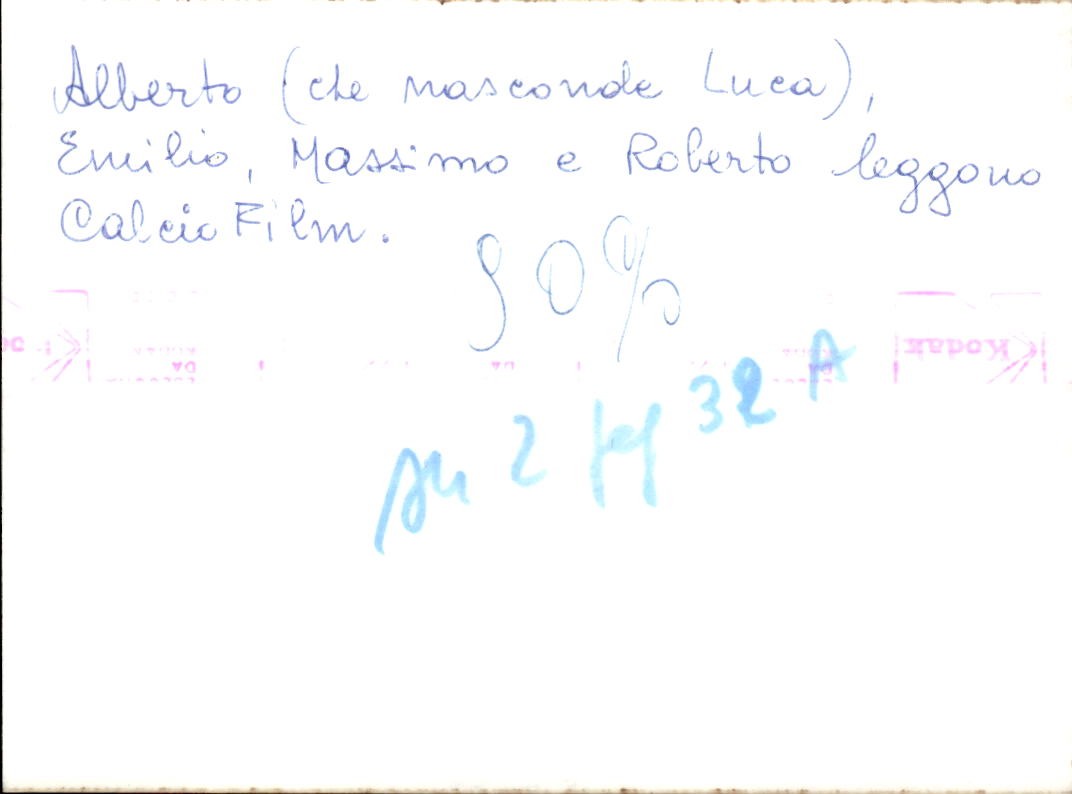 Alberto (che nasconde Luca),
Emilio, Massimo e Roberto leggono
Calcio Film.
90%
Kodak
2
32 A